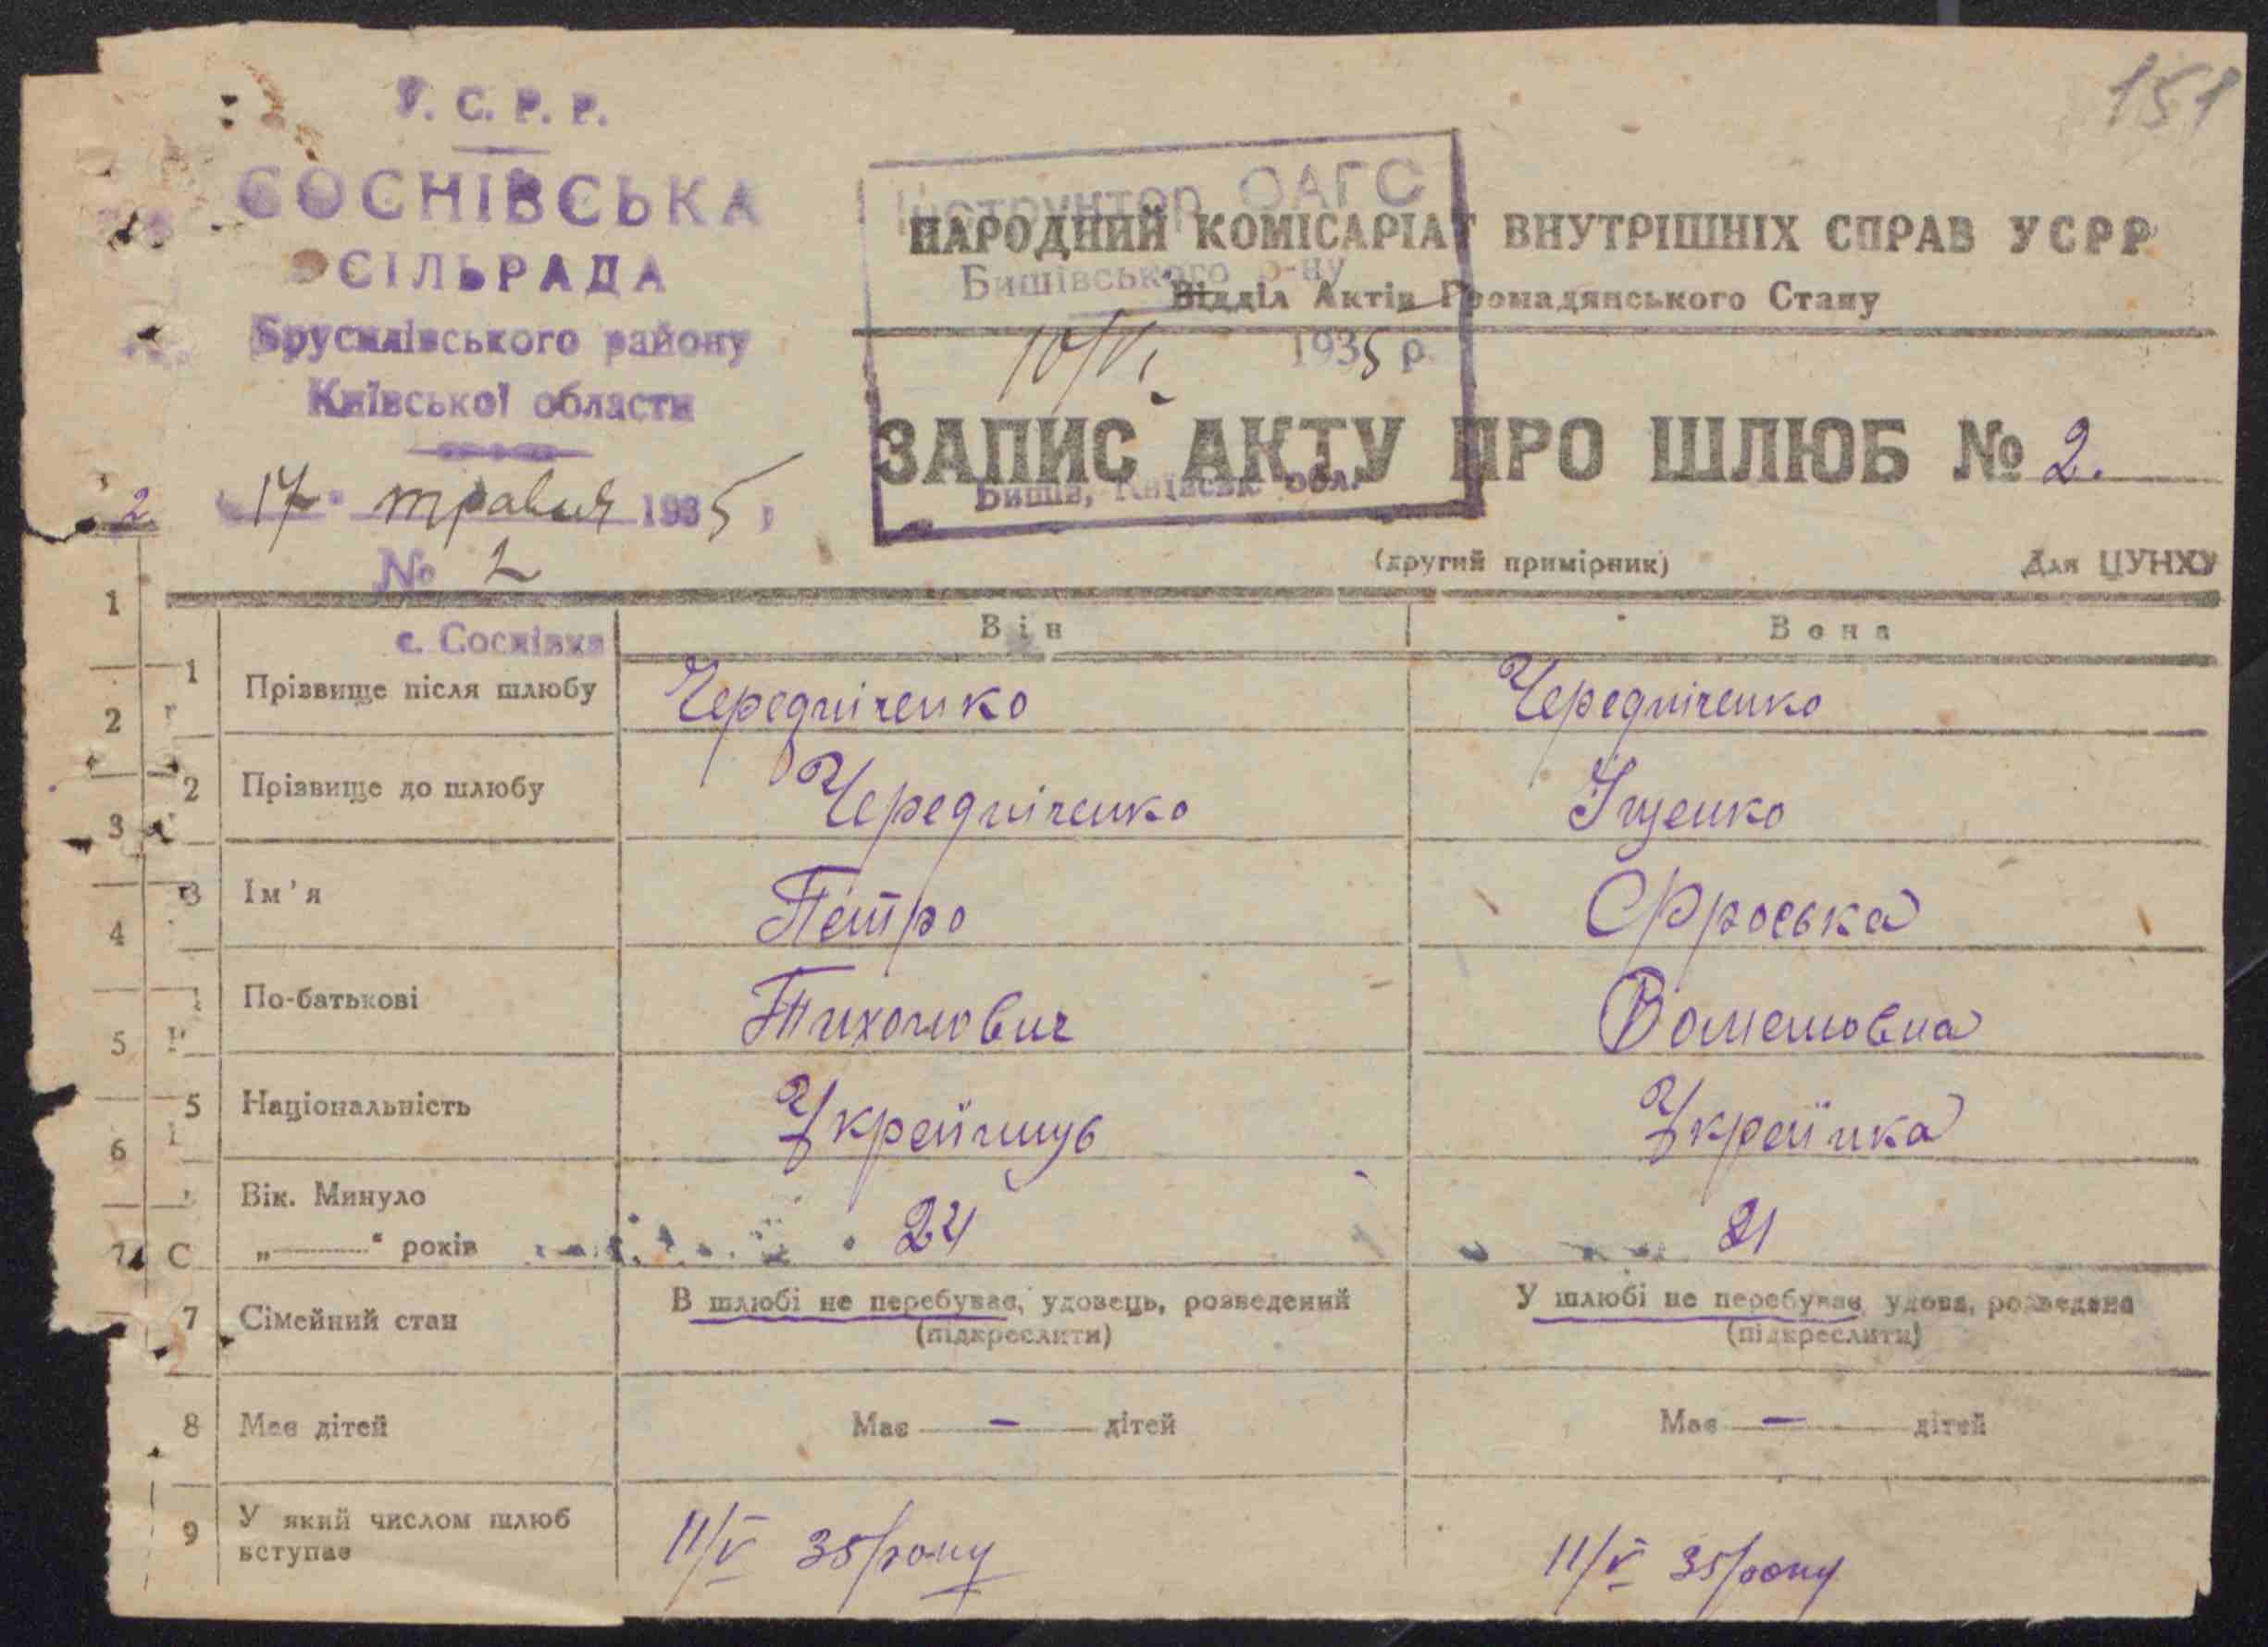 151
У. С. Р. Р.
СОСНІВСЬКА
СІЛЬРАДА
Брусилівського району
Київської области
17 травня 1935 р
№ 2
с. Соснівка
Інструктор ОАГС
Бишівського р-ну
10/VI 1935 р.
Бишів, Київськ. обл.
НАРОДНИЙ КОМІСАРІАТ ВНУТРІШНІХ СПРАВ УСРР
Відділ Актів Громадянського Стану
ЗАПИС АКТУ ПРО ШЛЮБ № 2.
(другий примірник) Для ЦУНХУ
2
1
2
3
4
5
6
7 С
Він Вона
1 Прізвище після шлюбу Чередніченко Чередніченко
2 Прізвище до шлюбу Чередніченко Іщенко
3 Ім'я Петро Єфроська
По-батькові Тихонович
5 Національність Украйинць Украйінка
Вік. Минуло
„ “ років 24 21
7 Сімейний стан В шлюбі не перебуває, удовець, розведений У шлюбі не перебуває, удова, розведена
(підкреслити) (підкреслити)
8 Має дітей Має - дітей Має - дітей
9 У який числом шлюб
вступає 11/V 35/року 11/V 35/року